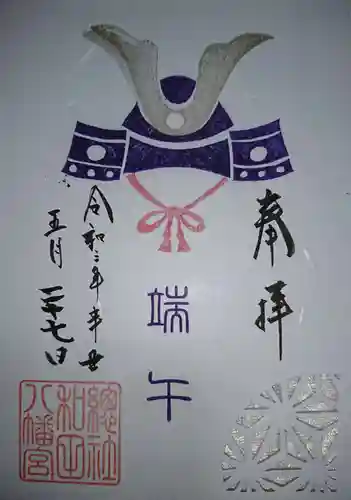 奉拝
端午
令和三年辛丑
五月二十七日
總社
和田
八幡宮